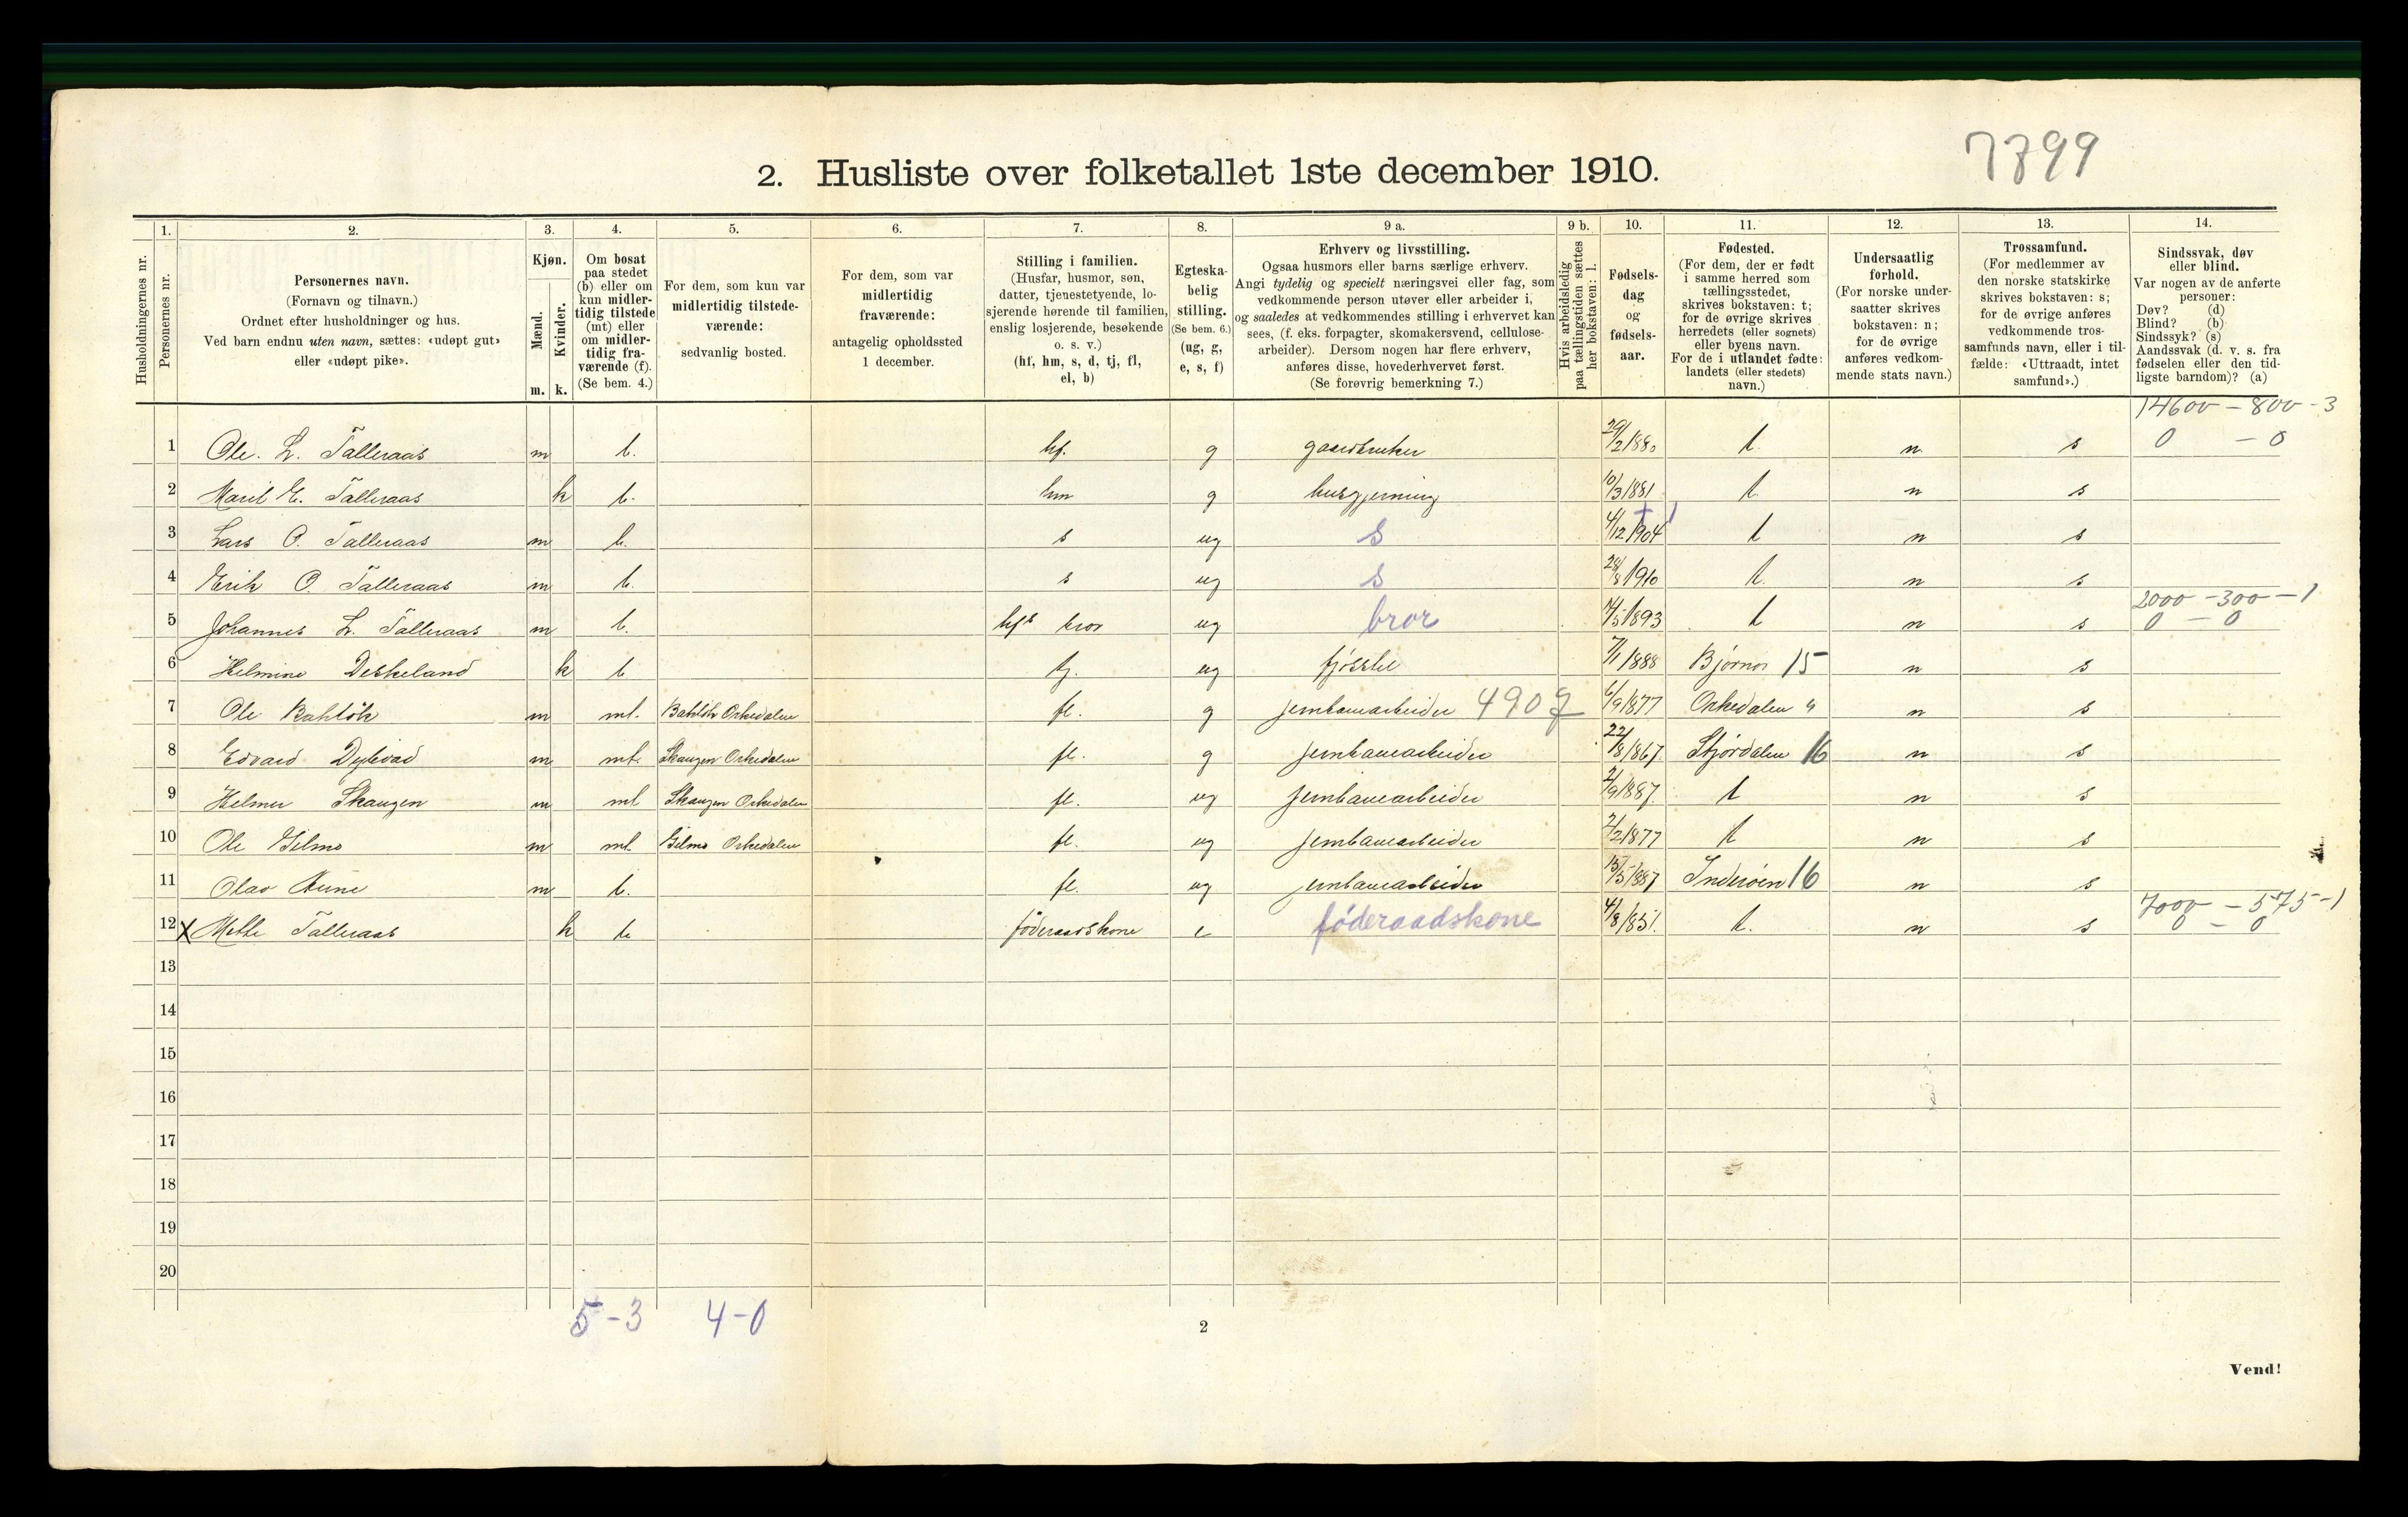 7899
2. Husliste over folketallet 1ste december 1910.
Husholdningernes nr.
1. Personernes nr.
2. Personernes navn. (Fornavn og tilnavn.) Ordnet efter husholdninger og hus. Ved barn endnu uten navn, sættes: «udøpt gut» eller «udøpt pike».
3. Kjøn. Mænd. m. Kvinder. k.
4. Om bosat paa stedet (b) eller om kun midlertidig tilstede (mt) eller om midlertidig fraværende (f). (Se bem. 4.)
5. For dem, som kun var midlertidig tilstedeværende: sedvanlig bosted.
6. For dem, som var midlertidig fraværende: antagelig opholdssted 1 december.
7. Stilling i familien. (Husfar, husmor, søn, datter, tjenestetyende, losjerende hørende til familien, enslig losjerende, besøkende o. s. v.) (hf, hm, s, d, tj, fl, el, b)
8. Egteskabelig stilling. (Se bem. 6.) (ug, g, e, s, f)
9 a. Erhverv og livsstilling. Ogsaa husmors eller barns særlige erhverv. Angi tydelig og specielt næringsvei eller fag, som vedkommende person utøver eller arbeider i, og saaledes at vedkommendes stilling i erhvervet kan sees, (f. eks. forpagter, skomakersvend, cellulosearbeider). Dersom nogen har flere erhverv, anføres disse, hovederhvervet først. (Se forøvrig bemerkning 7.)
9 b. Hvis arbeidsledig paa tællingstiden sættes her bokstaven: l.
10. Fødselsdag og fødselsaar.
11. Fødested. (For dem, der er født i samme herred som tællingsstedet, skrives bokstaven: t; for de øvrige skrives herredets (eller sognets) eller byens navn. For de i utlandet fødte: landets (eller stedets) navn.)
12. Undersaatlig forhold. (For norske undersaatter skrives bokstaven: n; for de øvrige anføres vedkommende stats navn.)
13. Trossamfund. (For medlemmer av den norske statskirke skrives bokstaven: s; for de øvrige anføres vedkommende trossamfunds navn, eller i tilfælde: «Uttraadt, intet samfund».)
14. Sindssvak, døv eller blind. Var nogen av de anførte personer: Døv? (d) Blind? (b) Sindssyk? (s) Aandssvak (d. v. s. fra fødselen eller den tidligste barndom)? (a)
14600 – 800 - 3
1 Ole. L. Talleraas m b. hf. g gaardbruker 29/2 1880 t. n. s 0 – 0
2 Marit E. Talleraas k b. hm g husgjerning 10/3 1881 t. n s
3 Lars O. Talleraas m b. s ug s 4/12 1904 t n s
4 Erik O. Talleraas m b. s ug s 28/8 1910 t. n s
2000 – 300 – 1
5 Johannes L. Talleraas m b. hfs bror ug bror 1893 t n s 0 – 0
6 Helmine Deskeland k b tj. ug fjøsstel 7/1 1888 Bjørnør 15 n s
7 Ole Bahlök m mt. Bahlök Orkedalen fl. g jernbanearbeider 4907 6/9 1877 Orkedalen n s
8 Edvard m mt. Skaugen Orkedalen fl. g jernbanearbeider 22/8 1867. Stjørdalen 16 n s
9 Helmer Skaugen m mt Skaugen Orkedalen fl. ug jernbanearbeider 2/9 1887. t n s
10 Ole Gilmo m mt. Gilmo Orkedalen fl. ug jernbanearbeider 2/2 1877 t n s
11 Olav Aune m b. fl. ug jernbanearbeider 15/5 1887 Inderøen 16 n s
7000 – 575 – 1
12 X Mette Talleraas k b. föderaadskone e føderaadskone 4/8 1851. t. n s 0 – 0
13
14
15
16
17
18
19
20
5 – 3 4 – 0
2
Vend!